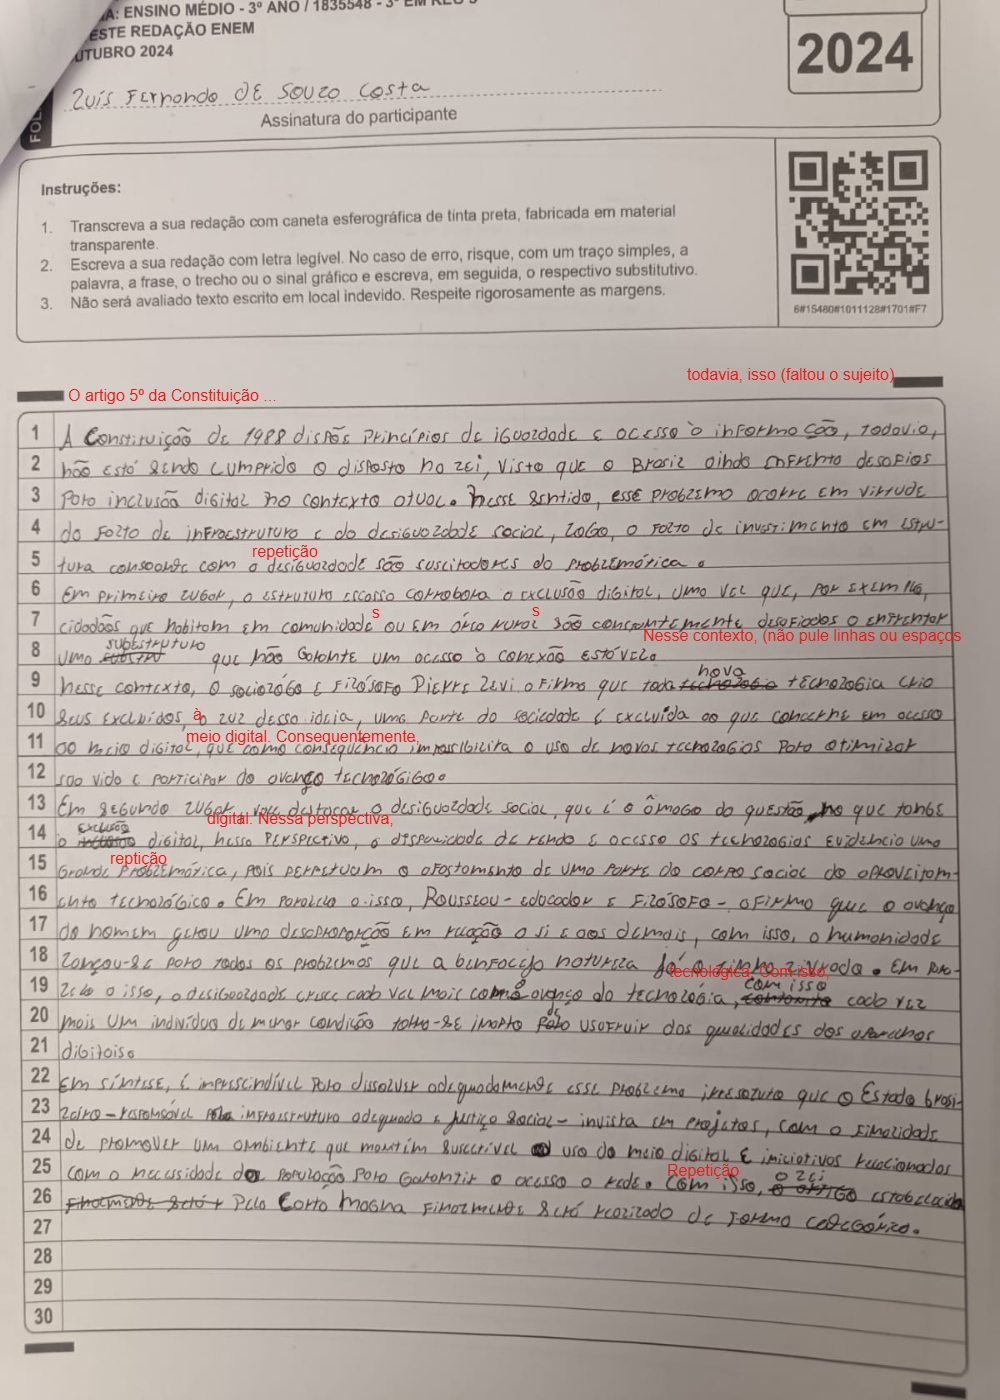 A: ENSINO MÉDIO - 3º ANO / 1835548 - 3º EM REG 3
ESTE REDAÇÃO ENEM
UTUBRO 2024
2024
Luís Fernando DE Souza Costa
Assinatura do participante
FOL
Instruções:
1. Transcreva a sua redação com caneta esferográfica de tinta preta, fabricada em material
transparente.
2. Escreva a sua redação com letra legível. No caso de erro, risque, com um traço simples, a
palavra, a frase, o trecho ou o sinal gráfico e escreva, em seguida, o respectivo substitutivo.
3. Não será avaliado texto escrito em local indevido. Respeite rigorosamente as margens.
6#15480#1011128#1701#F7
todavia, isso (faltou o sujeito)
O artigo 5º da Constituição ...
1 A Constituição de 1988 dispõe princípios de igualdade e acesso à informação, todavia,
2 não está sendo cumprido o disposto na lei, visto que o Brasil ainda enfrenta desafios
3 para inclusão digital no contexto atual. Nesse sentido, esse problema ocorre em virtude
4 da falta de infraestrutura e da desigualdade social, logo, a falta de investimento em estru-
repetição
5 tura consoante com a desigualdade são suscitadores da problemática.
6 Em primeiro lugar, a estrutura escassa corrobora a exclusão digital, uma vez que, por exemplo,
s s
7 cidadãos que habitam em comunidade ou em área rural são constantemente desafiados a enfrentar
Nesse contexto, (não pule linhas ou espaços
subestrutura
8 uma que não garante um acesso à conexão estável.
nova
9 Nesse contexto, o sociológo e filósofo Pierre Levi afirma que toda tecnologia tecnologia cria
à
10 seus excluídos, à luz dessa ideia, uma parte da sociedade é excluída ao que concerne em acesso
meio digital. Consequentemente,
11 ao meio digital, que como consequência impossibilita o uso de novas tecnologias para otimizar
12 sao vida e participar do avanço tecnológico.
13 Em segundo lugar, vale destacar a desigualdade social, que é o âmago da questão, no que tange
digital. Nessa perspectiva,
exclusão
14 a inclusão digital, nessa perspectiva, a disparidade de renda e acesso as tecnologias evidencia uma
reptição
15 grande problemática, pois perpetuam o afastamento de uma parte do corpo social do aproveitam-
16 ento tecnológico. Em paralelo a isso, Rousseau - educador e filósofo - afirma que o avanço
17 do homem gerou uma desproporção em relação a si e aos demais, com isso, a humanidade
18 lançou-se para todos os problemas que a benfaceja natureza já o tinha livrado. Em para-
tecnológica. Com isso,
com isso
19 lelo a isso, a desigualdade cresce cada vez mais com o avanço da tecnológia, cada vez
de
20 mais um indivíduo de menor condição torna-se inapto para usufruir das qualidades dos aparelhos
21 digitais.
22 Em síntese, é imprescindível para dissolver adequadamente esse problema irresoluto que o Estado brasi-
23 leiro - responsável pela infraestrutura adequada e justiça social - invista em projetos, com a finalidade
24 de promover um ambiente que mantém suscetível o uso do meio digital e iniciativas relacionadas
Repetição
25 com a necessidade da população para garantir o acesso a rede. Com isso, o artigo estabelecido
a lei
26 finalmente será pela Carta Magna finalmente será realizado de forma categórica.
27
28
29
30